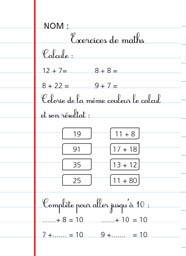 NOM :
Exercices de maths
Calcule :
12 + 7= 8 + 8 =
8 + 22 = 9 + 7 =
Colorie de la même couleur le calcul
et son résultat :
19 11 + 8
91 17 + 18
35 13 + 12
25 11 + 80
Complète pour aller jusqu'à 10 :
.......+ 8 = 10 .......+ 10 = 10
7 +....... = 10 9 +....... = 10